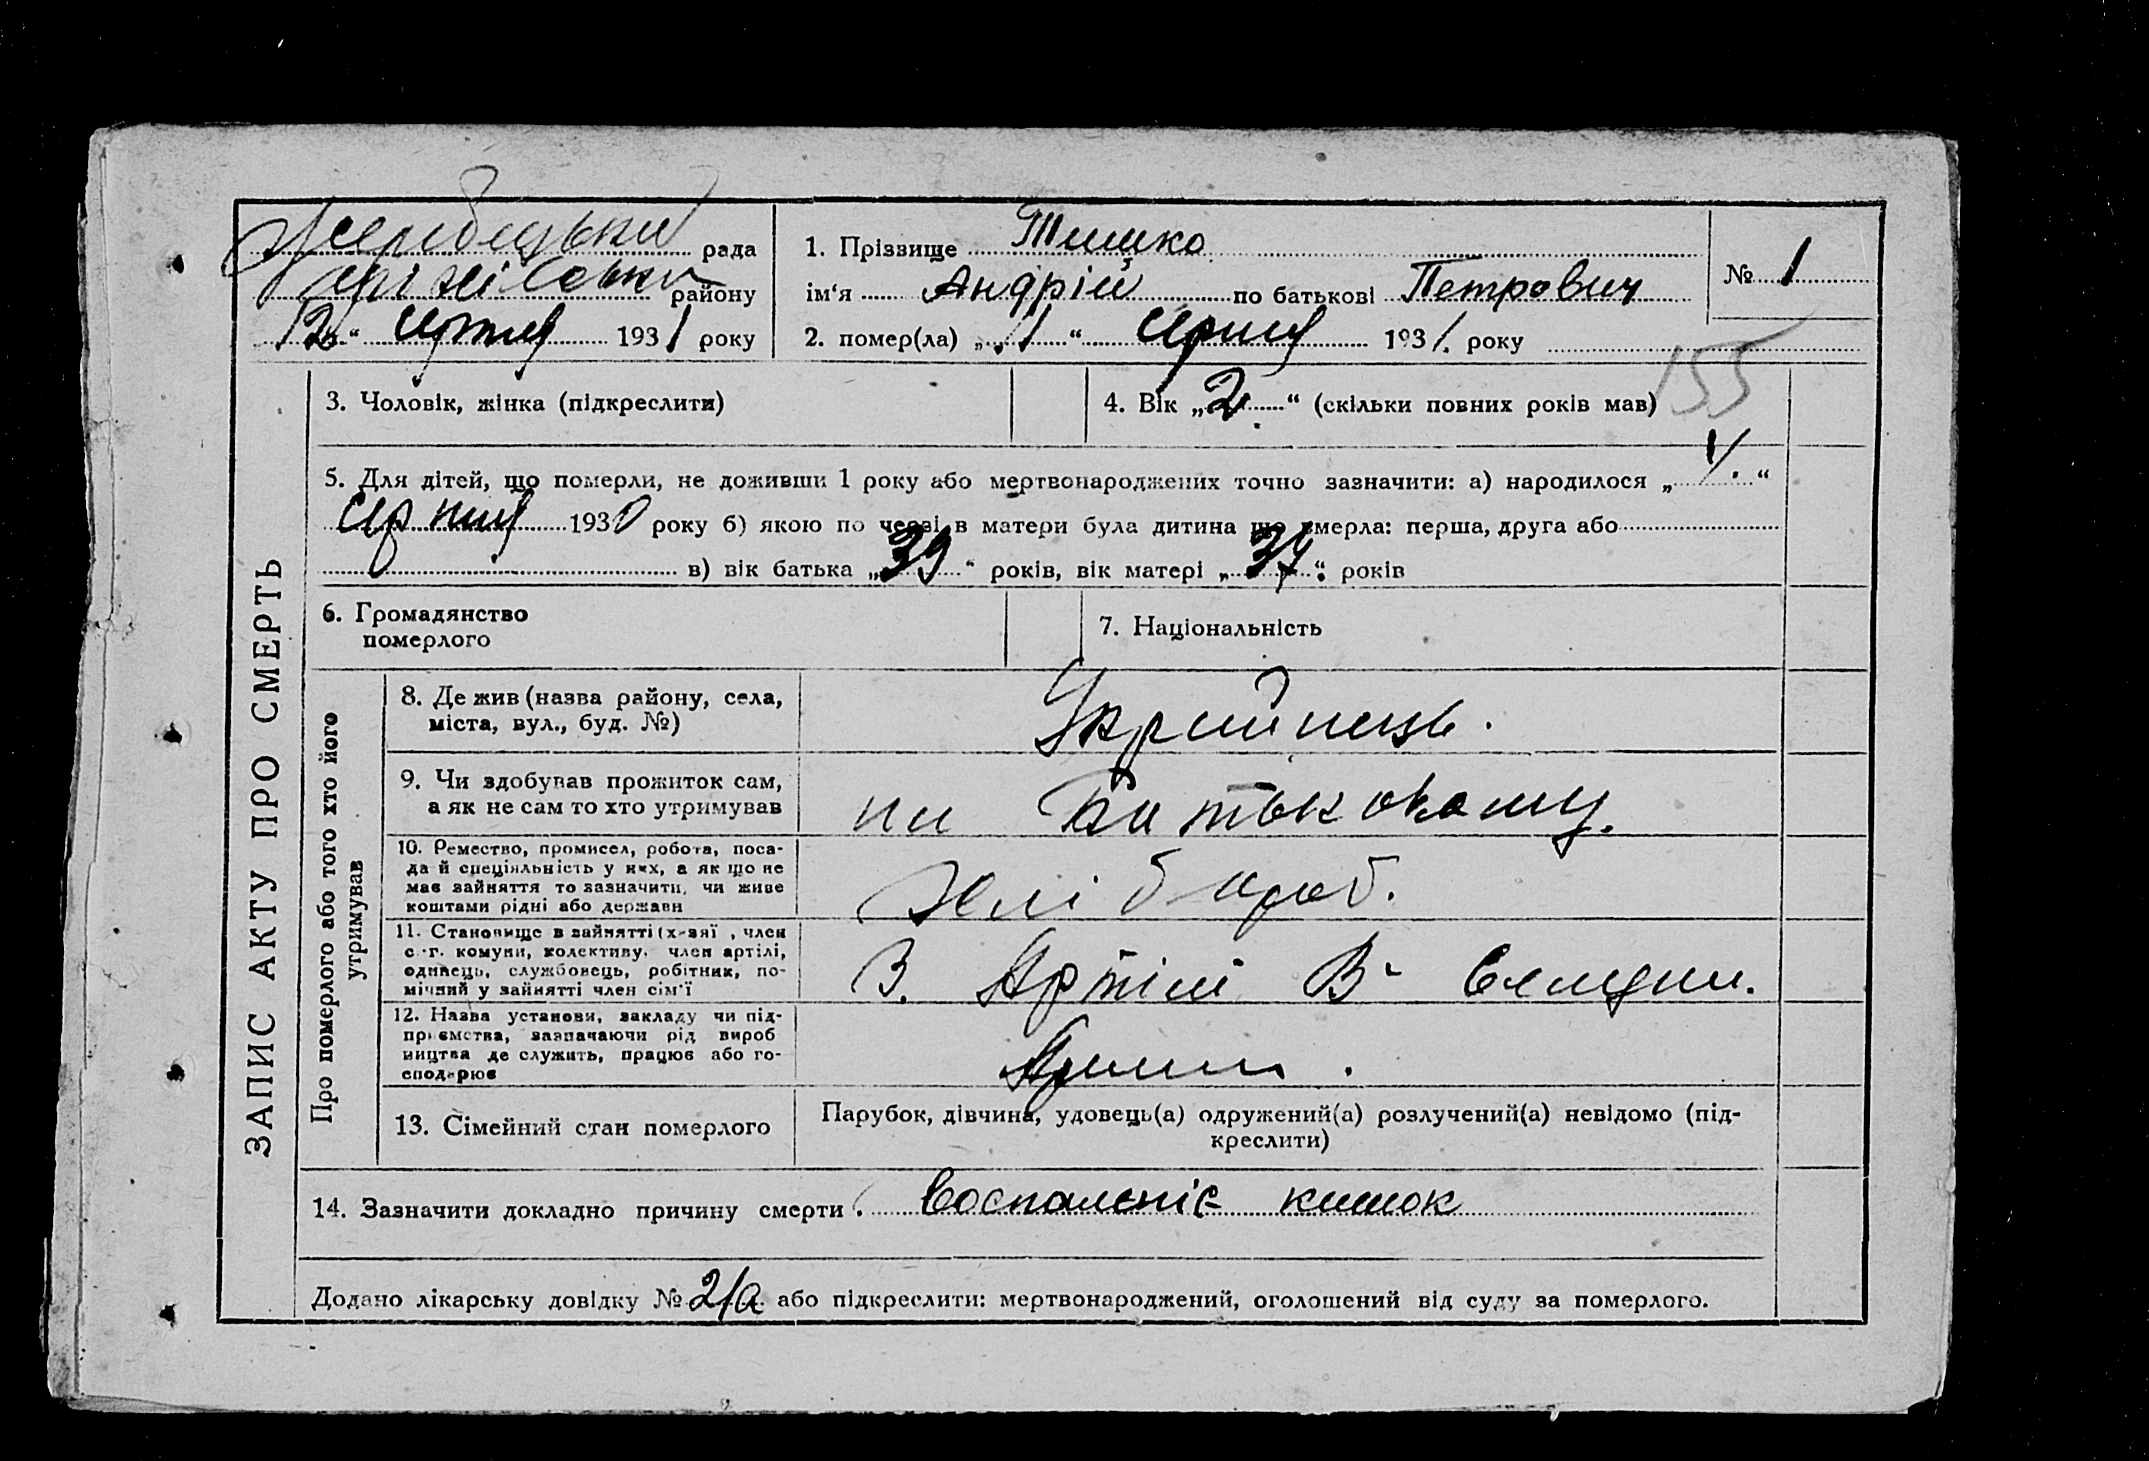 Жеребецька рада
району
"12" серпня 1931 року
1. Прізвище Тишко
ім'я Андрій по батькові Петрович
2. помер(ла) „1" серпня 1931. року
№ 1
155
3. Чоловік, жінка (підкреслити)
4. Вік „2" (скільки повних років мав)
5. Для дітей, що померли, не доживши 1 року або мертвонароджених точно зазначити: а) народилося „1."
серпня 1930 року б) якою по черзі в матери була дитина що вмерла: перша, друга або
в) вік батька „39" років, вік матері „37" років
6. Громадянство
померлого
7. Національність
ЗАПИС АКТУ ПРО СМЕРТЬ
Про померлого або того хто його
утримував
8. Де жив (назва району, села,
міста, вул., буд. №)
Українець.
9. Чи здобував прожиток сам,
а як не сам то хто утримував
на Батьковому.
10. Ремество, промисел, робота, поса-
да й спеціяльність у них, а як що не
має зайняття то зазначити, чи живе
коштами рідні або держави
Хлібороб.
11. Становище в зайнятті (х-заї , член
с.-г. комуни, колективу, член артілі,
одинець, службовець, робітник, по-
мічний у зайнятті член сім'ї
В. Артілі В-
12. Назва установи, закладу чи під-
приємства, зазначаючи рід вироб
ництва де служить, працює або го-
сподарює
13. Сімейний стан померлого
Парубок, дівчина, удовець(а) одружений(а) розлучений(а) невідомо (під-
креслити)
14. Зазначити докладно причину смерти. Воспаленіє кишок
Додано лікарську довідку № 2/а або підкреслити: мертвонароджений, оголошений від суду за померлого.